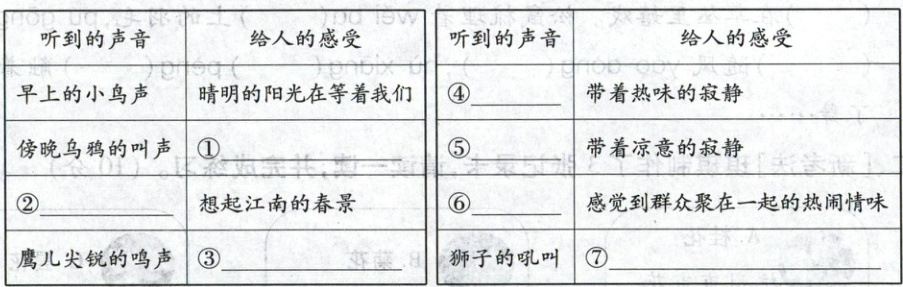 听到的声音 给人的感受
早上的小鸟声 晴明的阳光在等着我们
傍晚乌鸦的叫声 ①
②________ 想起江南的春景
鹰儿尖锐的鸣声 ③________
听到的声音 给人的感受
④________ 带着热味的寂静
⑤ 带着凉意的寂静
⑥________ 感觉到群众聚在一起的热闹情味
狮子的吼叫 ⑦________